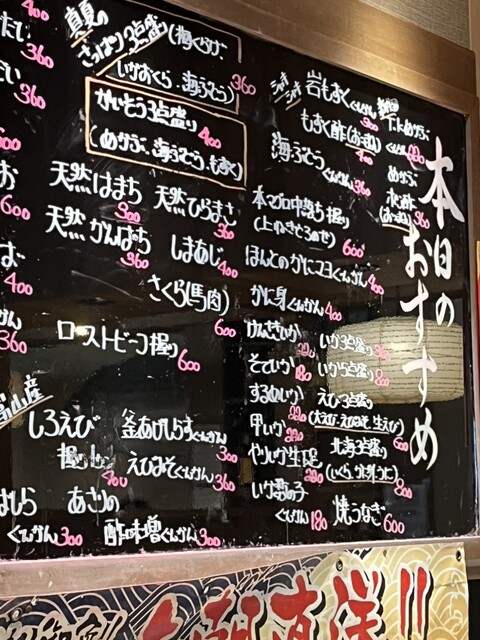 本日のおすすめ
岩もずくぐんかん
300
もずく酢(おつまみ)
400
海ぶどう
ぐんかん 360
めかぶ
220
めかぶ
水酢
(おつまみ) 360
本マグロ中落ち握り
(上ねぎとろのせ) 600
ほんとのかにマヨぐんかん 400
かに身ぐんかん 400
けんさきいか
そでいか 180
するめいか
220
甲いか 220
やりいか生ゲソ
220
いか真の子
ぐんかん 180
いか3点盛り 360
いか5点盛り 800
えび3点盛り
(大えび、えびみそ、生えび)
600
北海3点盛り
(いくら、ウニ)
800
焼うなぎ 600
真夏の
さっぱり3点盛り(梅くらげ、
いかおくら、海ぶどう) 360
かいそう3点盛り 400
(めかぶ、海ぶどう、もずく)
天然はまち
300
天然ひらまさ
360
天然かんぱち
360
しまあじ 400
さくら(馬肉)
600
ローストビーフ握り
600
富山産
しろえび
握り
400
釜あげしらすぐんかん
300
えびみそぐんかん 360
あさりの
酢味噌ぐんかん 300
ばしら
ぐんかん 300
400
360
360
600
400
360
直送!!